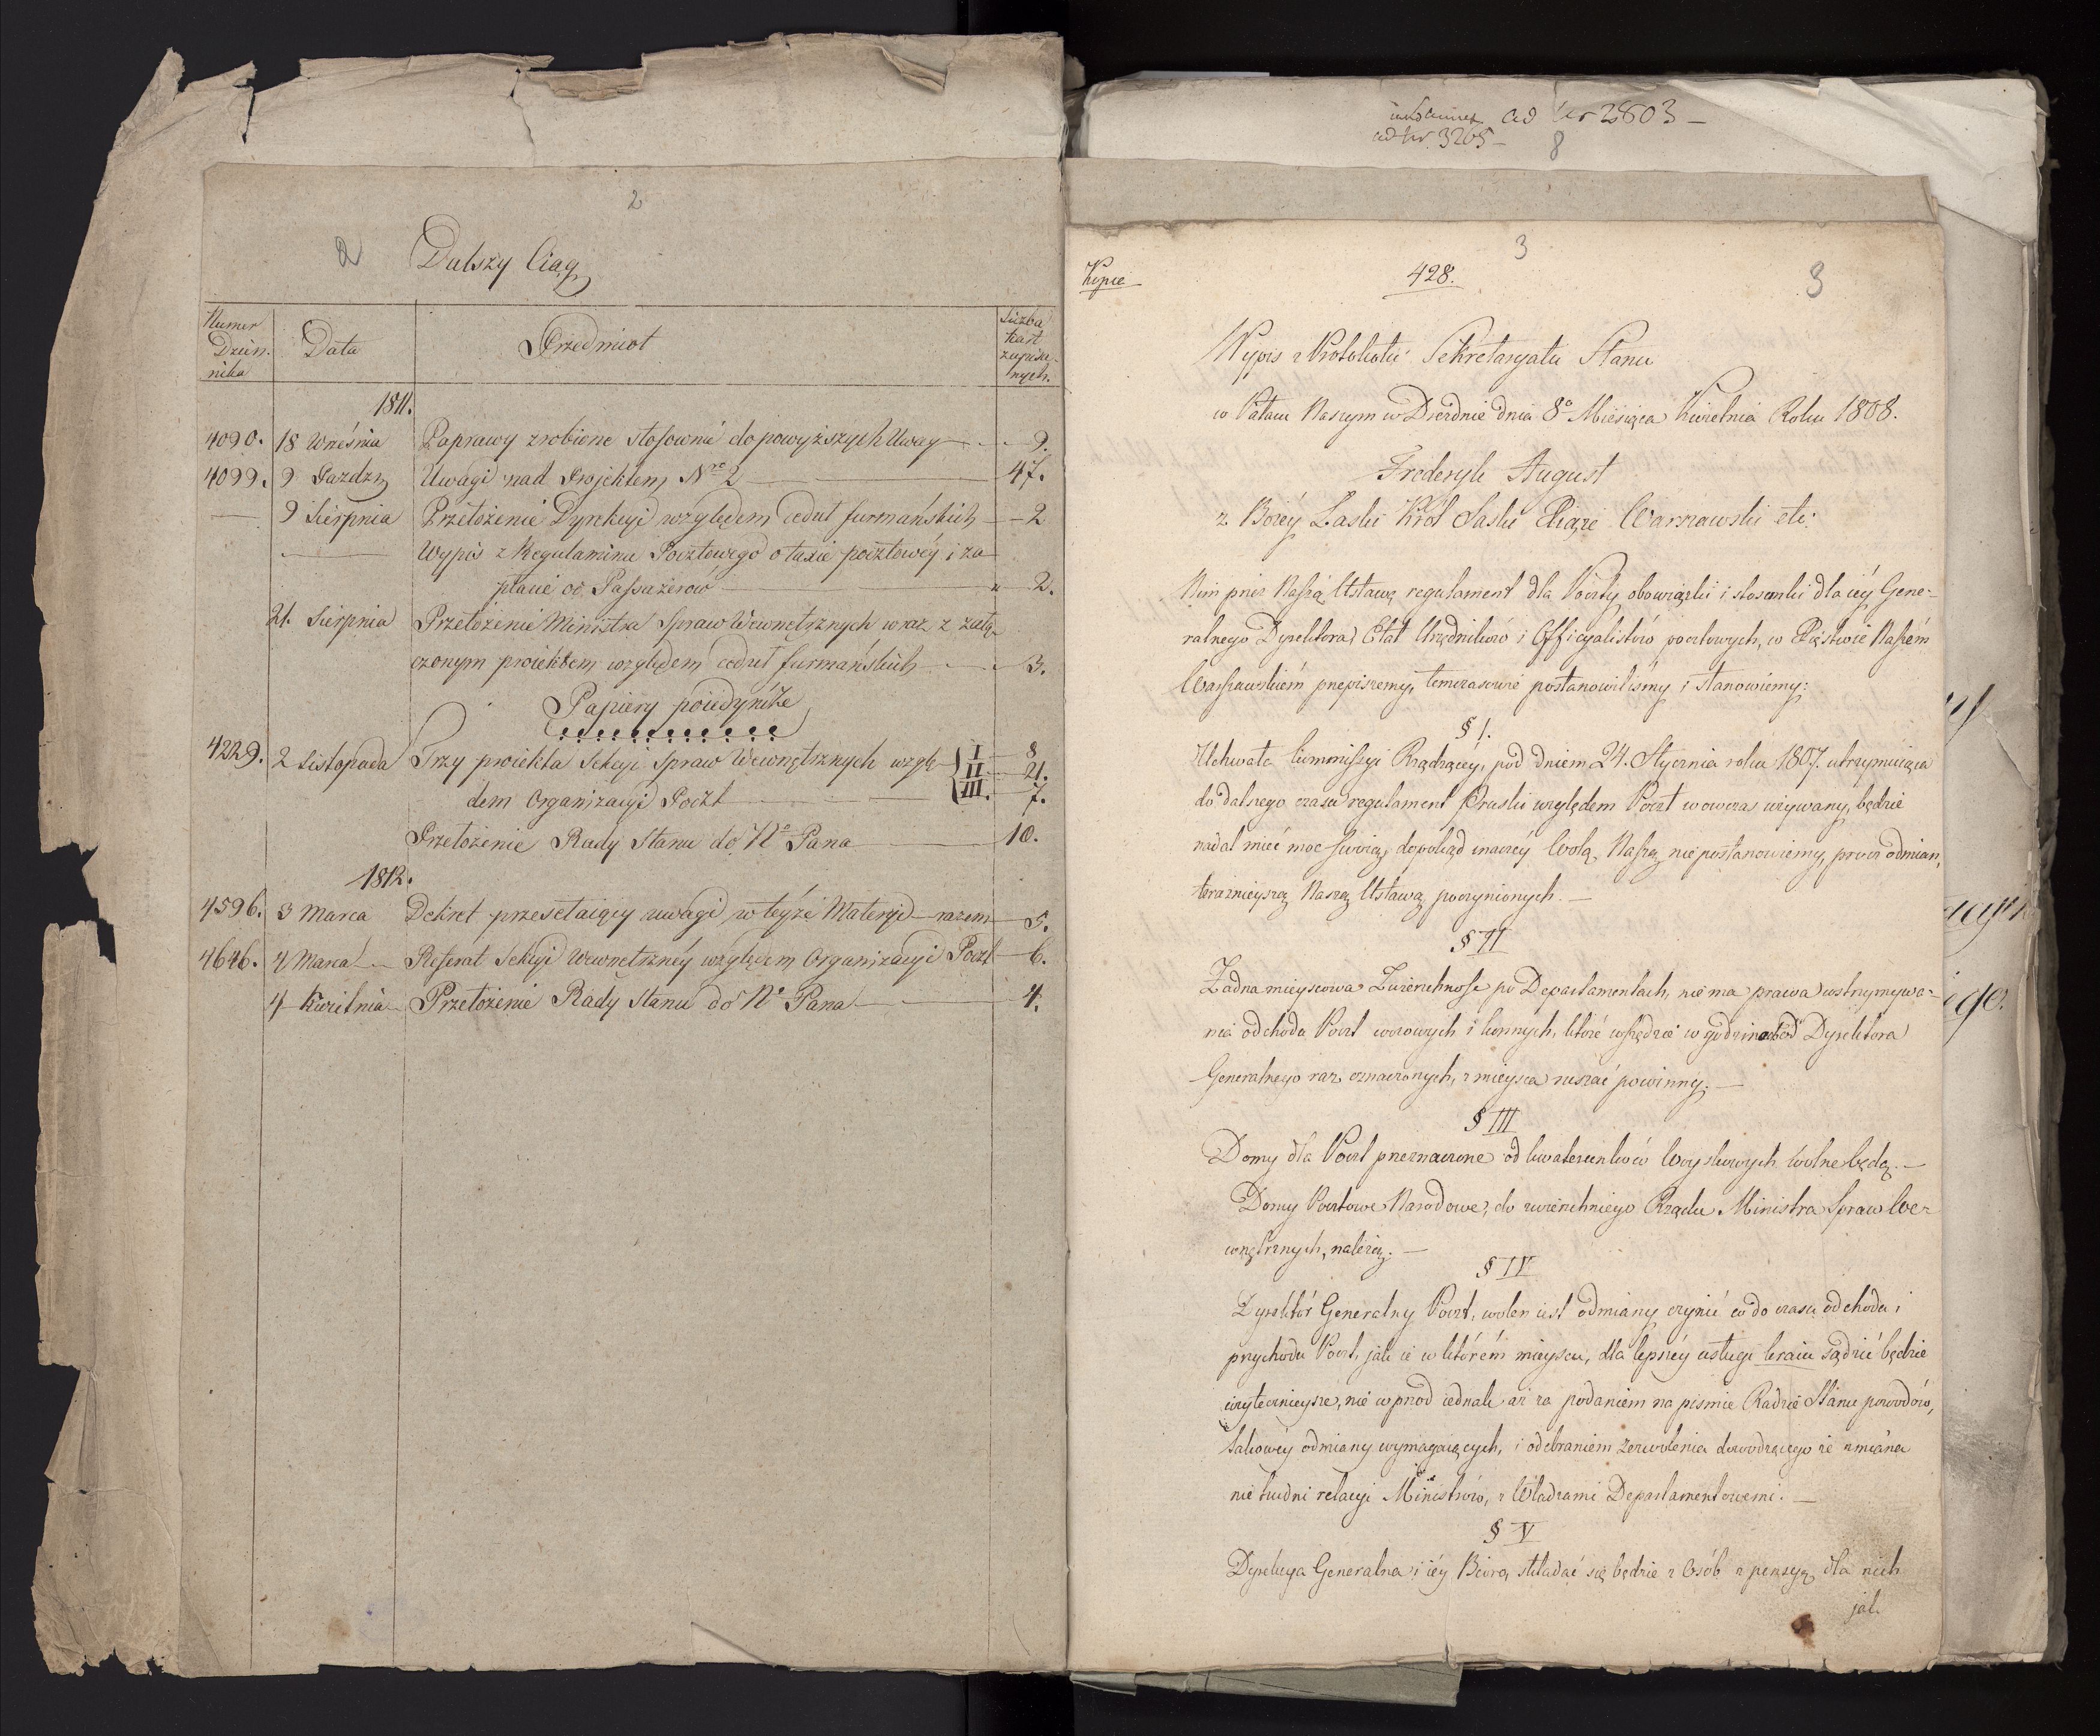 2
2 Dalszy Ciąg
Numer Dzien. nika
Data
Przedmiot
Liczba kart zapisa- nych.
1811.
4090. 18 Września Poprawy zrobione stosownie do powyższych Uwag 9.
4099. 9 Pazdzr Uwagi nad Projektem Nro 2 47.
9 Sierpnia Przełożenie Dyrekcyi względem cedul furmańskich 2
Wypis z Regulaminu Pocztowego o taxie pocztowéy i za
płacie od Passażerow 2.
21. Sierpnia Przełożenie Ministra Spraw Wewnętrznych wraz z załą-
czonym proiéktem względem cedul furmańskich 3.
Papiery poiedyńcze
4229. 2 Listopada Trzy proiekta Sekcyi Spraw Wewnętrznych wzglę- I 8
II 21.
dem Organizacyi Poczt III. 7.
Przełożenie Rady Stanu do No Pana 10.
1812.
4596. 3 Marca Dekret przesełaiący uwagi w teyże Materyi razem 5.
4646. 4 Marca Referat Sekcyi Wewnętrznéy względem Organizacyi Poczt 6.
4 Kwietnia Przełożenie Rady Stanu do No Pana 4.
ad Nr 2803
ad Nr. 3205
8
3
Kopie 428. 3
Wypis z Protokołu Sekretaryatu Stanu
w Pałacu Naszym w Dreźnie dnia 8o Miesiąca Kwietnia Roku 1808.
Frederyk August
z Bożéy Łaski Król Saski Xiąże Warszawski etc:
Nim przez Naszą Ustawę regulament dla Poczty obowiązki i stosunki dla iéy Gene-
ralnego Dyrektora, Etat Urzędników i Officyalistów pocztowych, w Xięstwie Naszém
Warszawskiém przepiszemy, tymczasowie postanowiliśmy i stanowiemy:
§ I.
Uchwała Kommissyi Rządzącéy, pod dniem 24. Stycznia roku 1807. utrzymuiąca
do dalszego czasu regulament Pruski względem Poczt wowczas używany, będzie
nadal mieć moc swoią, dopokąd inaczéy Wolą Naszą nie postanowiemy, procz odmian,
teraźnieyszą Naszą Ustawą poczynionych.
§ II
Żadna mieyscowa Zwierzchność po Departamentach, nie ma prawa wstrzymywa-
nia odchodu Poczt wozowych i konnych, które wszędzie w godzinach od Dyrektora
Generalnego raz oznaczonych, z mieysca ruszać powinny.
§ III
Domy dla Poczt przeznaczone od kwaterunków Woyskowych wolne będą.
Domy Pocztowe Narodowe, do zwierzchniego Rządu Ministra Spraw We-
wnętrznych, należą.
§ IV
Dyrektór Generalny Poczt, wolen iest odmiany czynić co do czasu odchodu i
przychodu Poczt, jak ie w którém mieyscu, dla lepszéy usługi kraiu sądzić będzie
użytecznieysze, nie wprzod iednak aż za podaniem na pismie Radzie Stanu powodów,
takowéy odmiany wymagaiących, i odebraniem zezwolenia dowodzącego że zmiana
nie trudni relacyi Ministrów, z Władzami Departamentowemi.
§ V
Dyrekcya Generalna i iéy Biora, składać się będzie z Osób z pensyą dla nich
jak